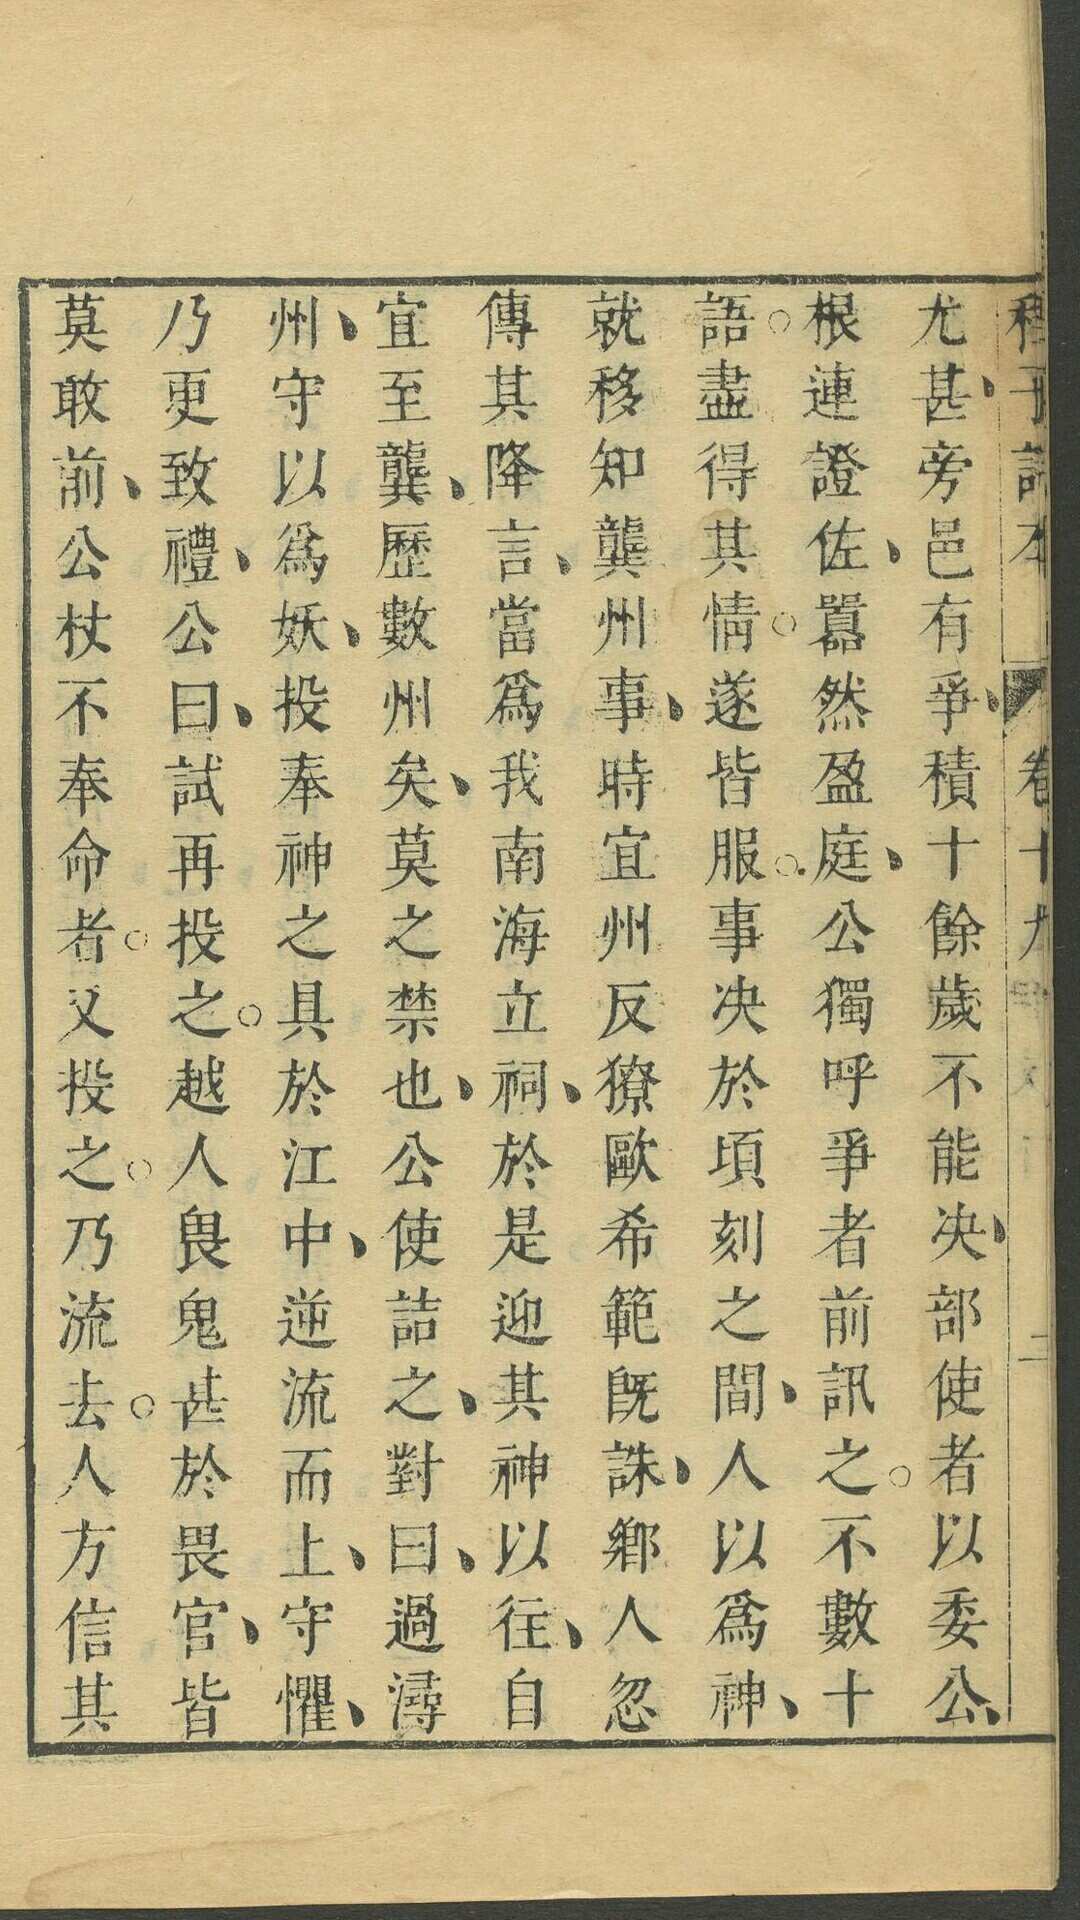 卷十九
尤甚、旁邑有爭、積十餘歲不能决、部使者以委公、
根連證佐、囂然盈庭、公獨呼爭者前訊之。不數十
語。盡得其情。遂皆服。事决於頃刻之間、人以爲神、
就移知龔州事、時宜州反獠歐希範既誅、鄉人忽
傳其降言、當爲我南海立祠、於是迎其神以往、自
宜至龔、歷數州矣、莫之禁也、公使詰之、對曰、過潯
州、守以爲妖、投奉神之具於江中、逆流而上、守懼、
乃更致禮、公曰、試再投之。越人畏鬼甚於畏官、皆
莫敢前、公杖不奉命者。又投之。乃流去。人方信其